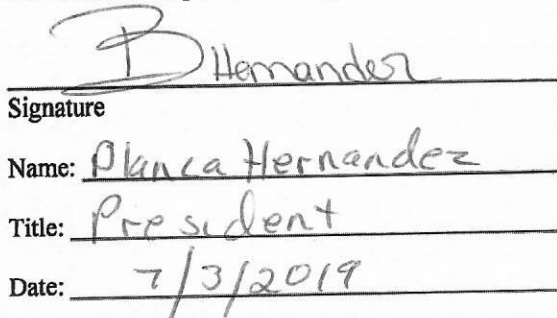 BHernandez
Signature
Name: Blanca Hernandez
Title: President
Date: 7/3/2019